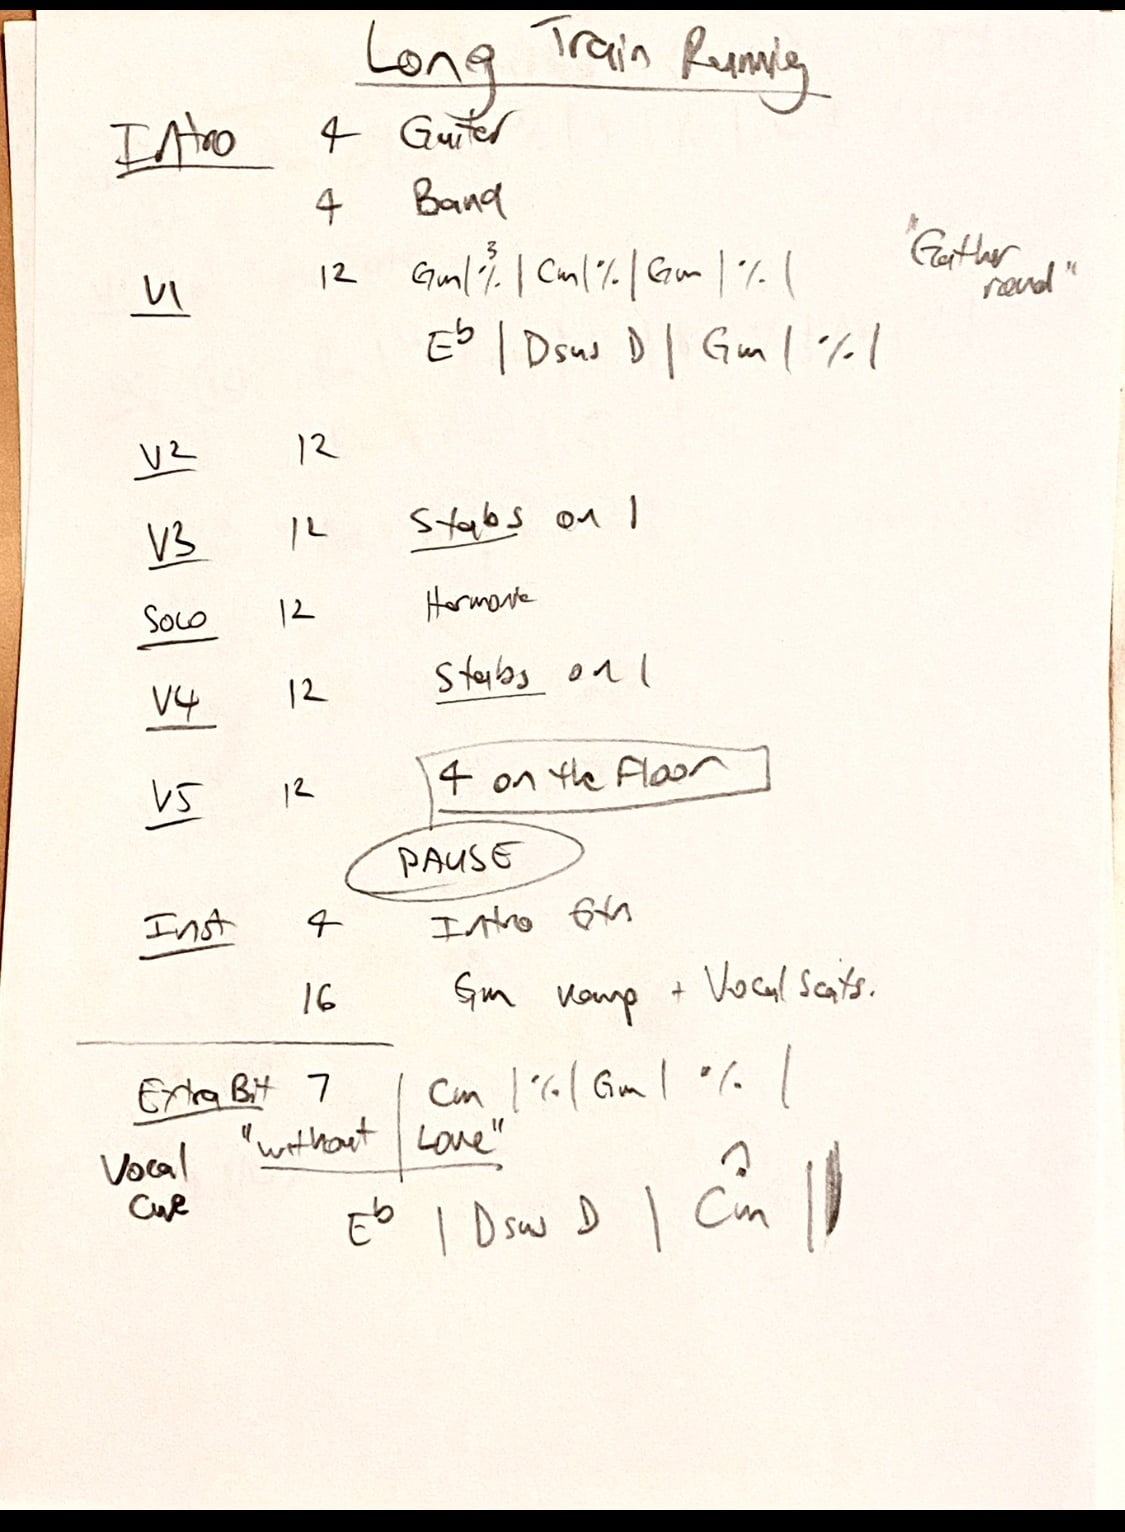 Long Train Running
Intro 4 Guitar
4 Band
V1 12 Gm | 3 % | Cm | % | Gm | % |
"Gather round"
Eb | Dsus D | Gm | % |
V2 12
V3 12 Stabs on 1
Solo 12
V4 12 Stabs on 1
V5 12 4 on the Floor
PAUSE
Inst 4 Intro Gtr
16 Gm vamp + Vocal Scats.
Extra Bit 7 | Cm | % | Gm | % |
Vocal Cue "without Love"
Eb | Dsus D | Cm ||